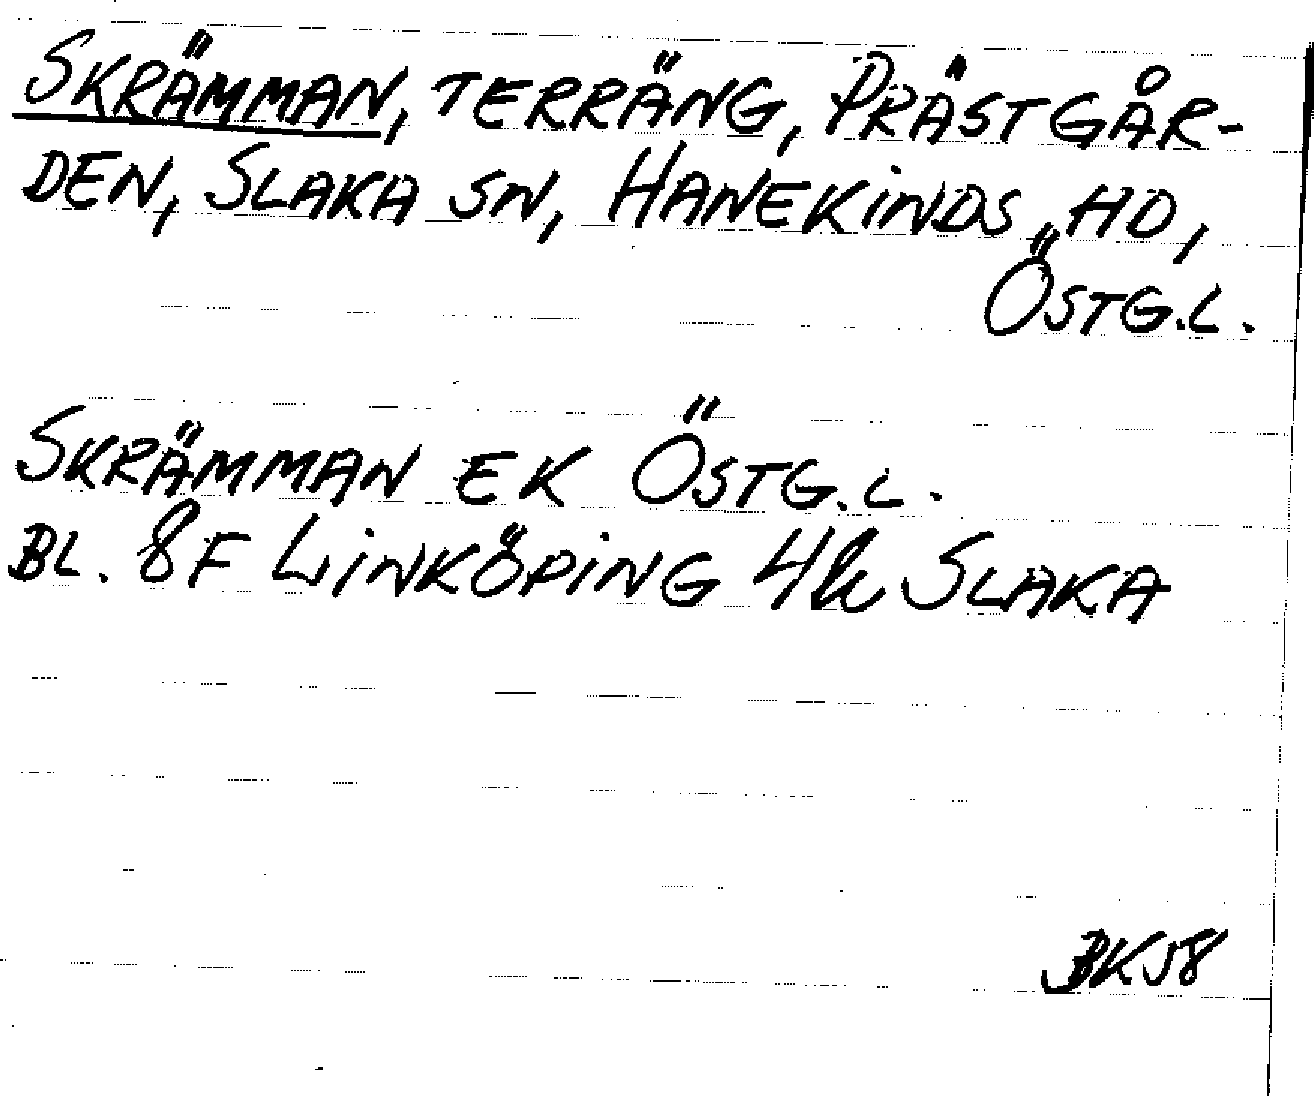 SKRÄMMAN, TERRÄNG, PRÄSTGÅR-
DEN, SLAKA SN, HANEKINDS HD,
ÖSTG.L.
SKRÄMMAN EK ÖSTG.L.
BL. 8F LINKÖPING 4k SLAKA